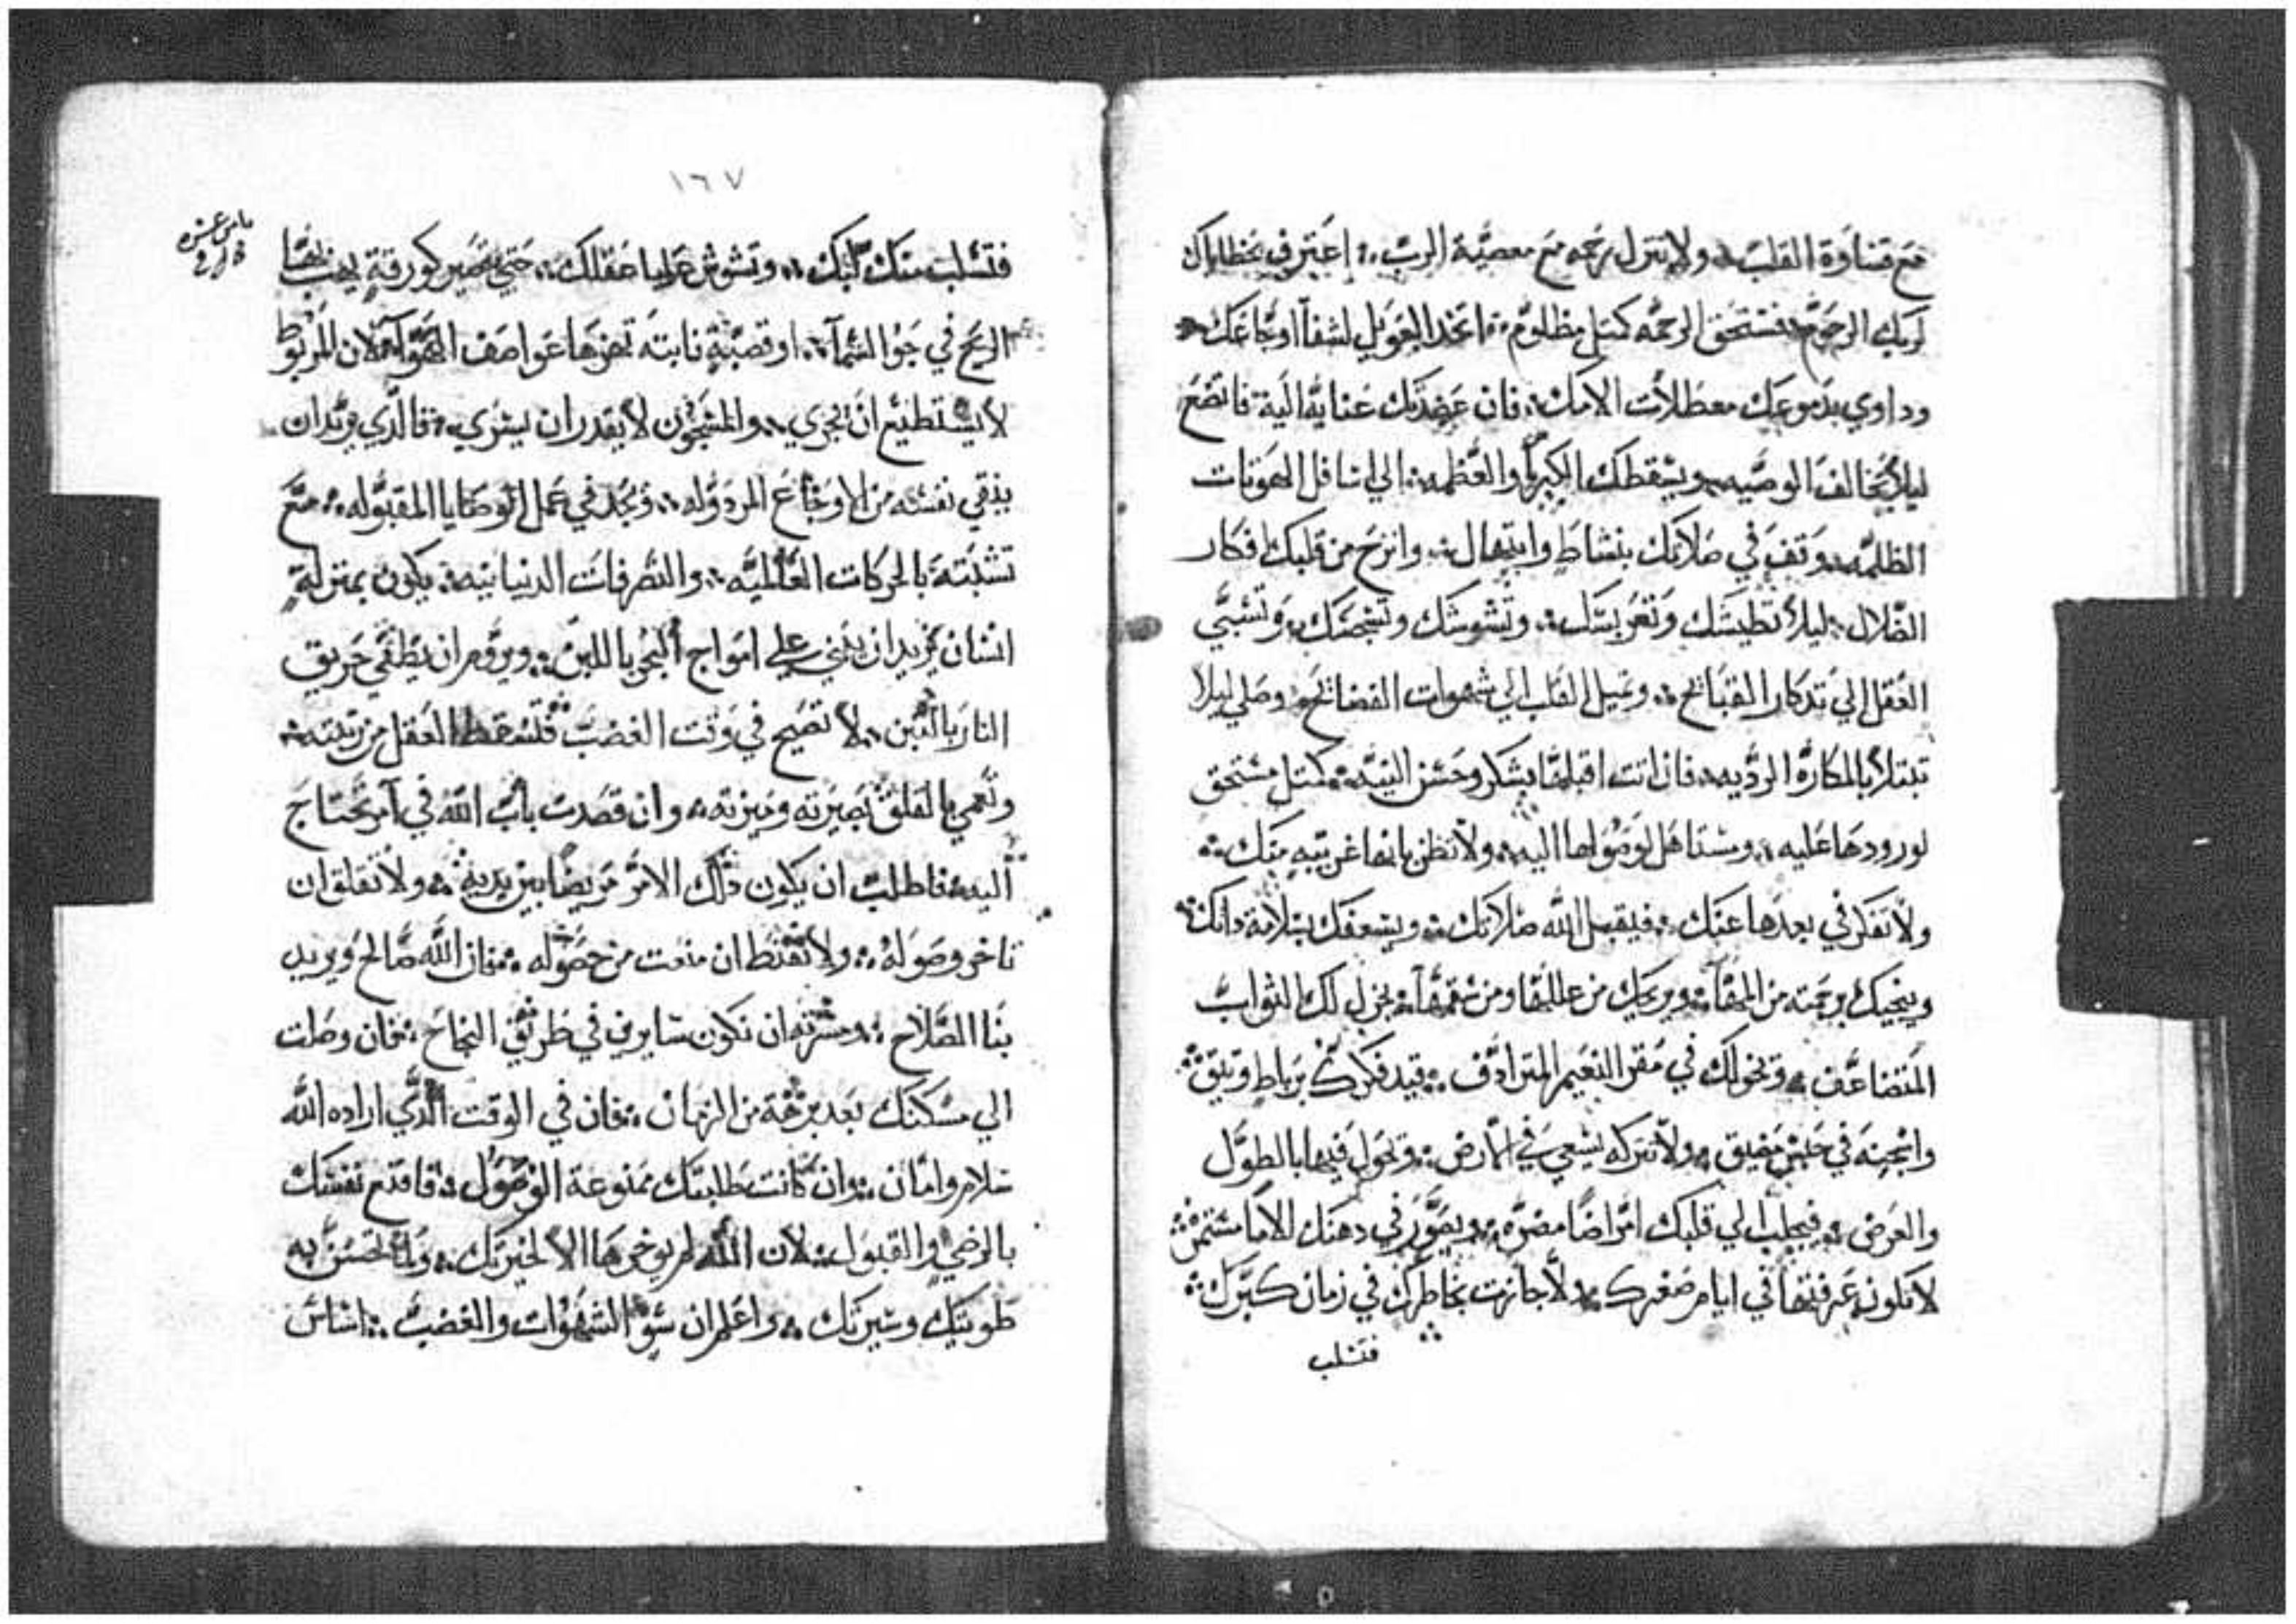 مع قساوة القلب ولا تنزل رحمه مع معصية الرب إعترف بخطاياك
لربك الرحوم فتستحق الرحمه كمثل مظلوم اتخذ العويل لشفآ اوجاعك
وداوي بدموعك معظلات الامك فان عضدتك عناية الهية فاتضع
ليلا تخالف الوصيه ويسقطك الكبريا والعظمه الي اسافل الهوتات
الظلمه وقف في صلاتك بنشاط وابتهال وانزح من قلبك افكار
الضلال ليلا تطيشك وتغربسك وتشوشك وتسبي
العقل الي تدكار القبايح وتميل القلب الي شهوات الفضايح وصلي ليلا
تبتلا بالمكاره الرديه فان اتت اقبلها بشكر وحسن النيه كمثل مستحق
لورودها عليه ومستاهل لوصولها اليه ولا تظن بانها غريبه منك
ولا تفكر في بعدها عنك فيقبل الله صلاتك ويسعفك بسلامة داتك
وينجيك برحمته من ويريحك من عللها ومن سقمها يجزل لك الثواب
المتضاعف وتخولك في مقر النعيم المترادف قيد فكرك برباط وتيق
واسجنه في حبس مضيق ولا تتركه يسعي في الارض وتجول فيها بالطول
والعرض فيجلب الي قلبك امراضا مضره ويصور في دهنك الاما مستمره
لا تكون عرفتها في ايام صغرك ولا جازت بخاطرك في زمان كبرك
فتسلب
١٦٧
فتسلب منك لبك وتشوش عليا عقلك حتي تصير كورقة يهب بها
الريح في جو السمآ او قصبة نابته تهزها عواصف الهوآ لان المربوط
لا يستطيع ان يجري والمسجون لا يقدر ان يسري فالدي يريد ان
ينقي نفسه من الاوجاع المردوله ويجد في عمل الوصايا المقبوله مع
تشبته بالحركات العالميه والتصرفات الدنيانيه يكون بمنزلة
انسان يريد ان يبني علي امواج البحر باللبن ويروم ان يطفي حريق
النار بالتبن لا تصيح في وقت الغضب فتسقط العقل من رتبته
وتعمي بالقلق بصيرته وميزته وان قصدت باب الله في امر تحتاج
اليه فاطلب ان يكون دلك الامر مريضا بين يديه ولا تقلق ان
تاخر وصوله ولا تقنط ان منعت من حصوله فان الله صالح ويريد
بنا الصلاح ومسرته ان نكون سايرين في طريق النجاح فان وصلت
الي مسكنك بعد برهة من الزمان فان في الوقت الدي اراده الله
سلام وامان وان كانت طلبتك ممنوعة الوصول فاقنع نفسك
بالرضي والقبول لان الله لم يوخرها الا لخيرتك ولما تحسن به
طويتك وسيرتك واعلم ان سو الشهوات والغضب اساس